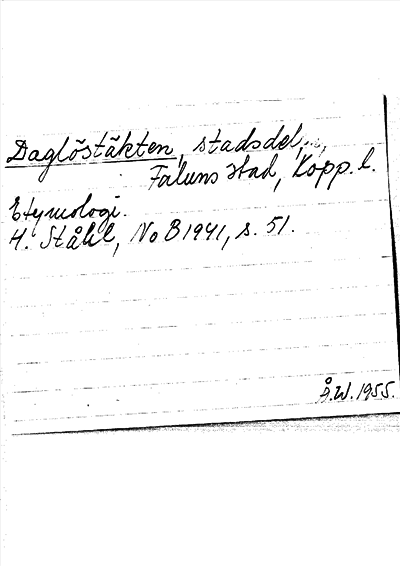 Daglöstäkten, stadsdel,
Faluns stad, Kopp. l.
Etymologi.
H. Ståhl, NoB 1941, s. 51.
Å.W. 1955.